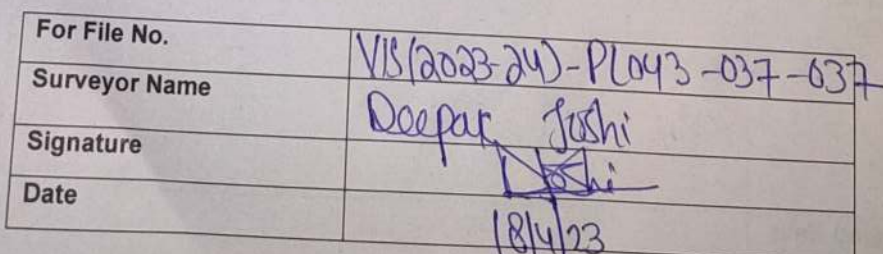 For File No. VIS(2023-24)-PL043-037-037
Surveyor Name Deepak Joshi
Signature Joshi
Date 18/4/23